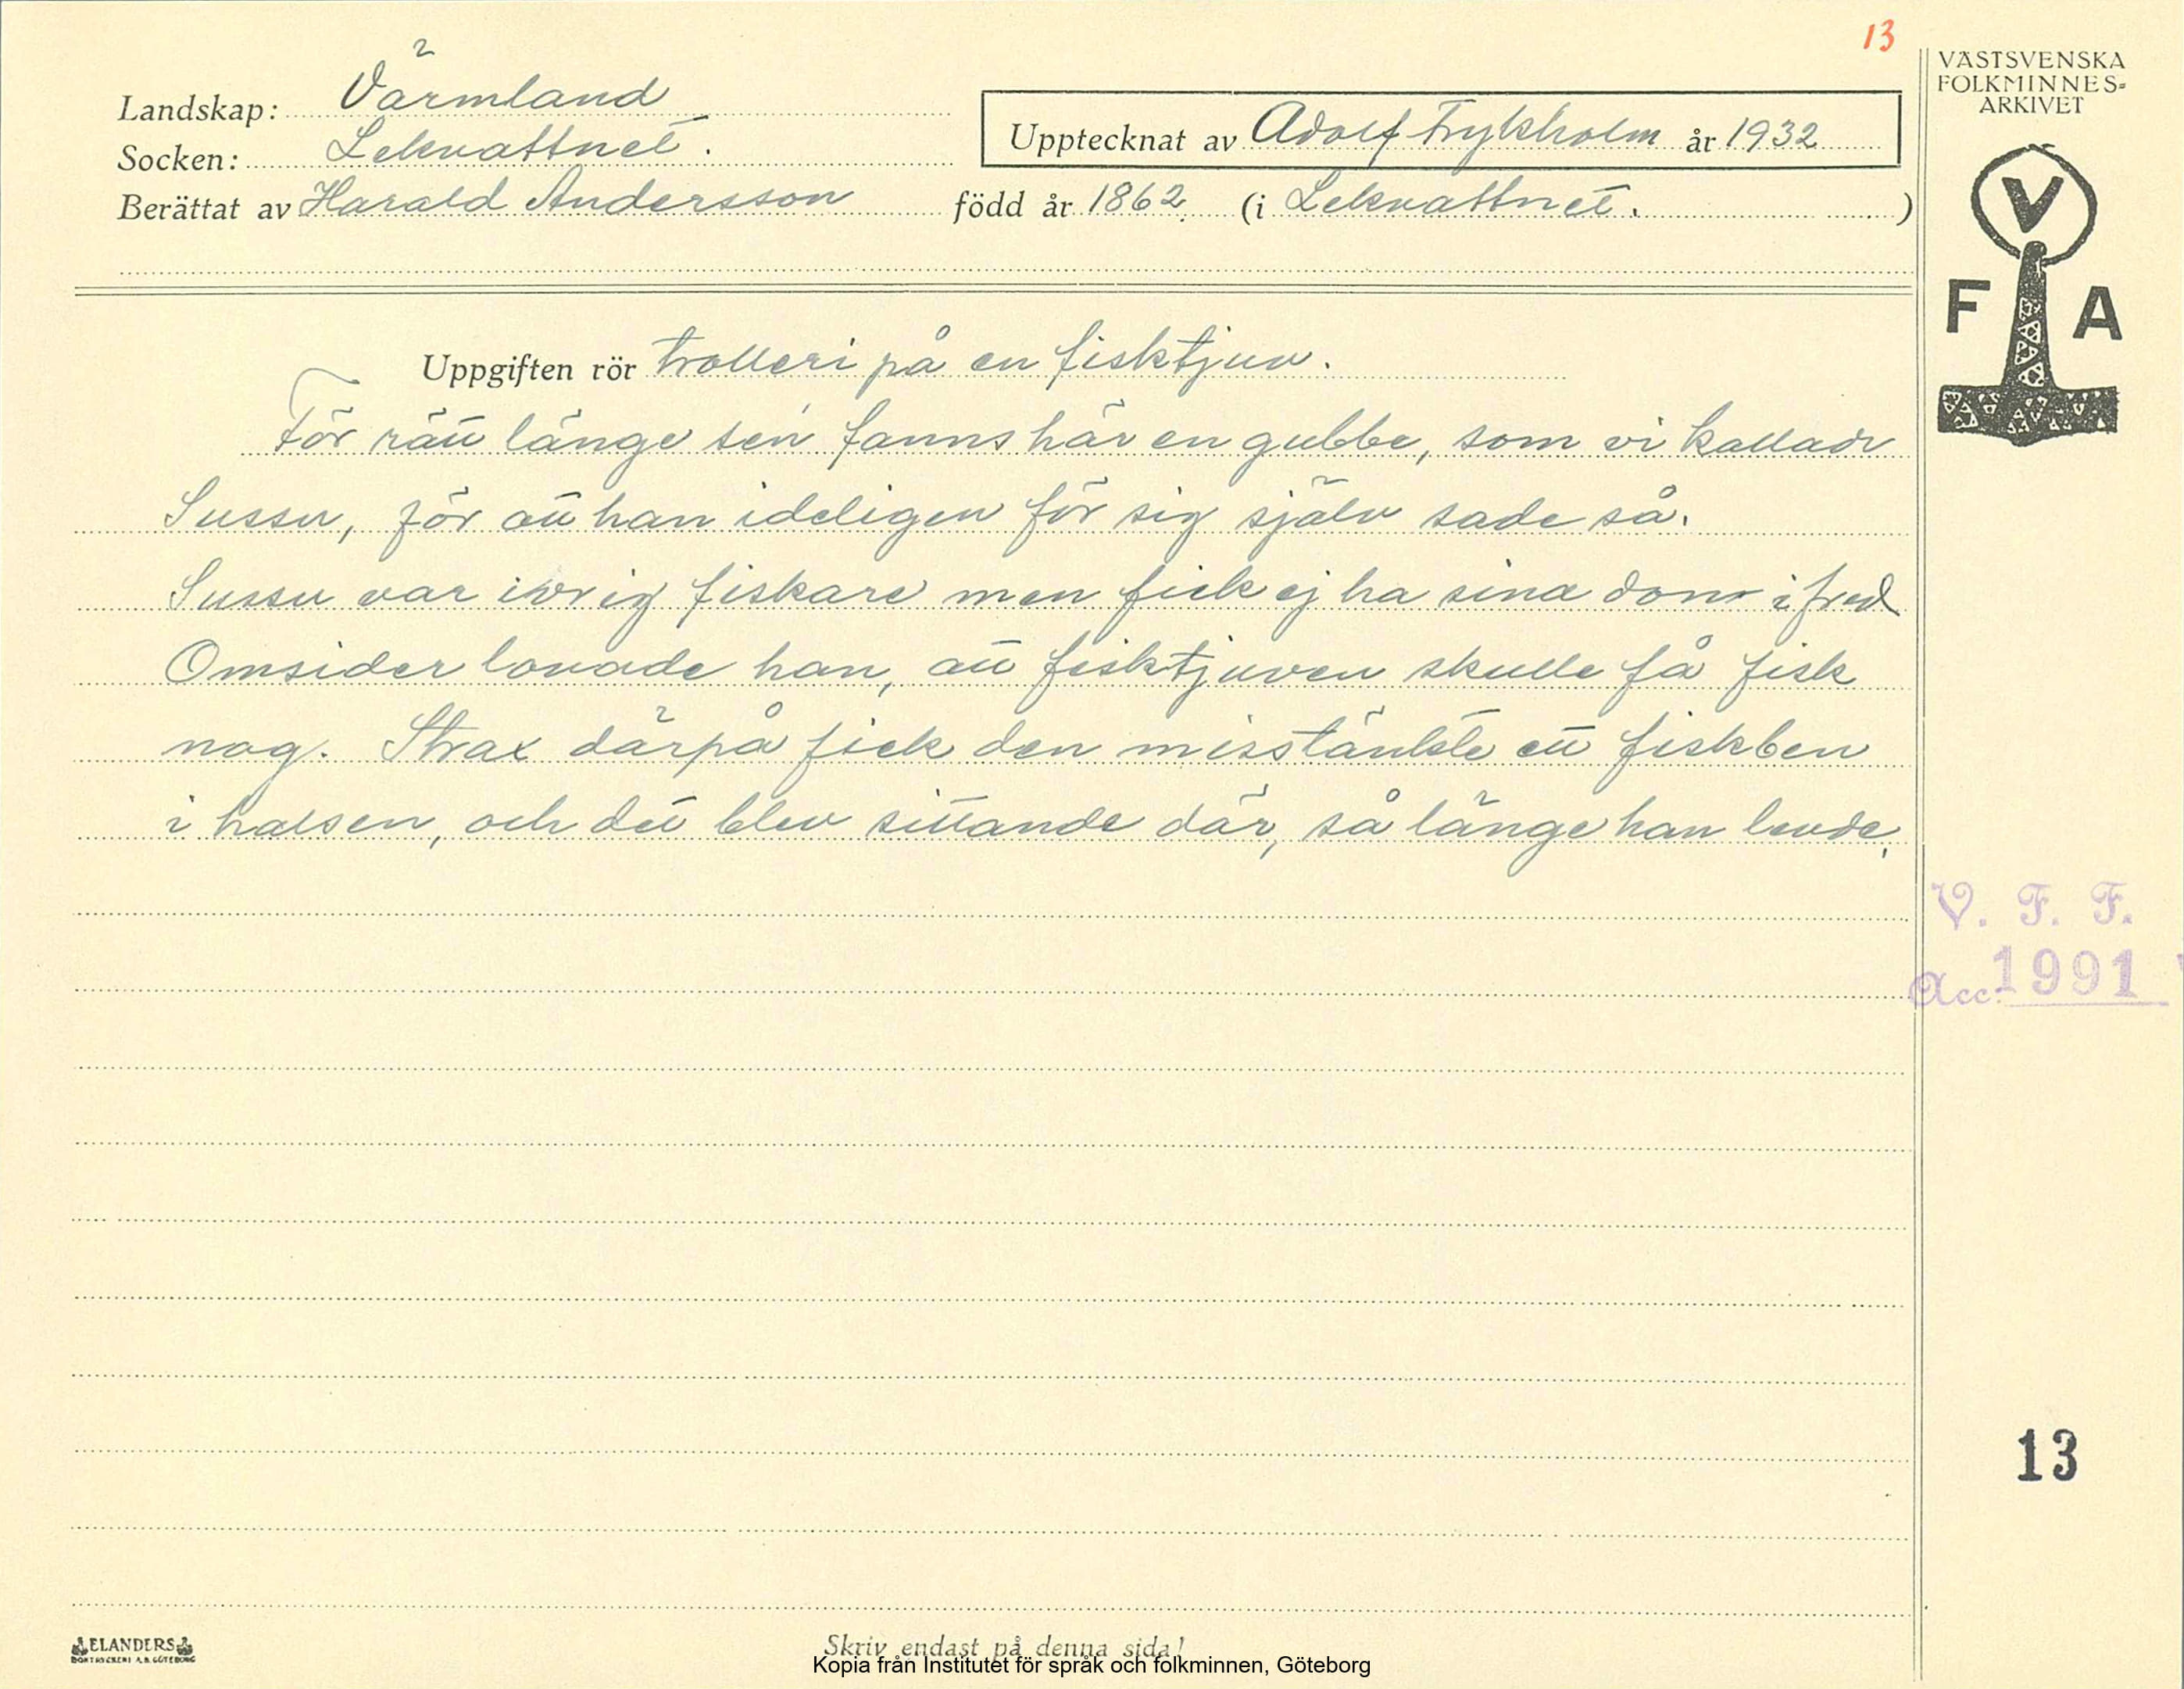 13
VÄSTSVENSKA
FOLKMINNES-
ARKIVET
Landskap: Värmland
Socken: Lekvattnet.
Upptecknat av Adolf Frykholm år 1932
Berättat av Harald Andersson född år 1862. (i Lekvattnet. )
V
F A
Uppgiften rör trolleri på en fisktjuv.
För rätt länge sen fanns här en gubbe, som vi kallade
Sussu, för att han ideligen för sig själv sade så.
Sussu var ivrig fiskare men fick ej ha sina don i fred
Omsider lovade han, att fisktjuven skulle få fisk
nog. Strax därpå fick den misstänkte ett fiskben
i halsen, och det blev sittande där, så länge han levde.
V. F. F.
Acc. 1991
13
ELANDERS
BOKTRYCKERI A.B. GÖTEBORG
Skriv endast på denna sida!
Kopia från Institutet för språk och folkminnen, Göteborg